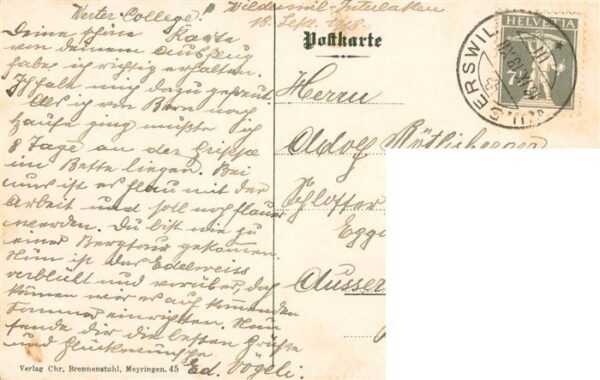 Werter College!
Wilderswil-Interlaken
18. Sept. 1918.
Deine schöne Karte
von deinem Ausflug
habe ich richtig erhalten.
Ich hab mich dazu gefreut.
Als ich von Bern nach
Hause ging mußte ich
8 Tage an der Grippe
im Bette liegen. Bei
uns ist es flau mit der
Arbeit und soll noch flauer
werden. Du bist nie zu
einer Bergtour gekommen.
Nun ist das Edelweiss
verblüht und vorüber doch
können wir es auf kommenden
Sommer einrichten. Nun
sende dir die besten Grüße
und Glückwünsche
Ed. Vögeli.
Postkarte
HELVETIA
7½
Herrn
Adolf Röthlisberger
Schlosser
Egg
Ausser
Verlag Chr. Brennenstuhl, Meyringen. 45